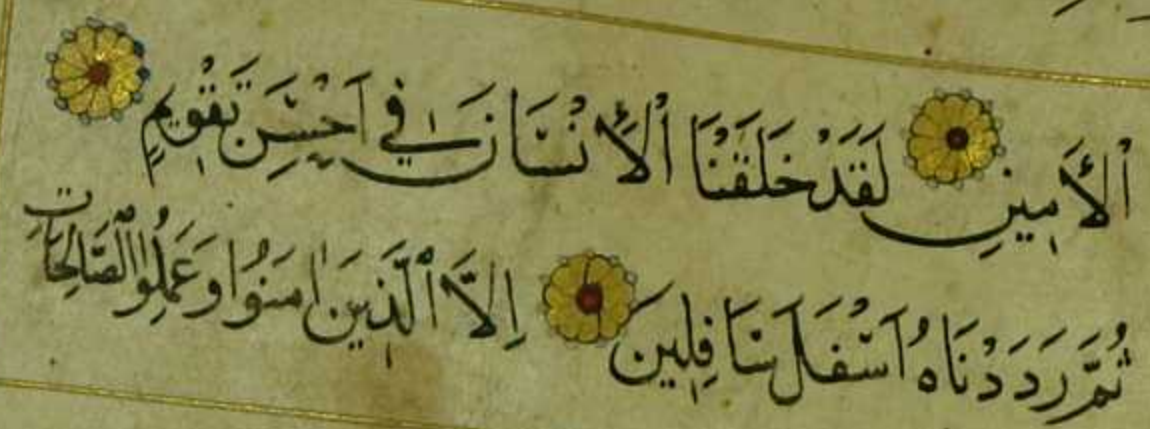 ٱلْأَمِينِ لَقَدْ خَلَقْنَا ٱلْأِنْسَانَ فِي اَحْسَنِ تَقْوِيمٍ
ثُمَّ رَدَدْنَاهُ اَسْفَلَ سَافِلِينَ اِلَّا ٱلَّذِينَ اٰمَنُوا وَعَمِلُوا ٱلصَّالِحَاتِ